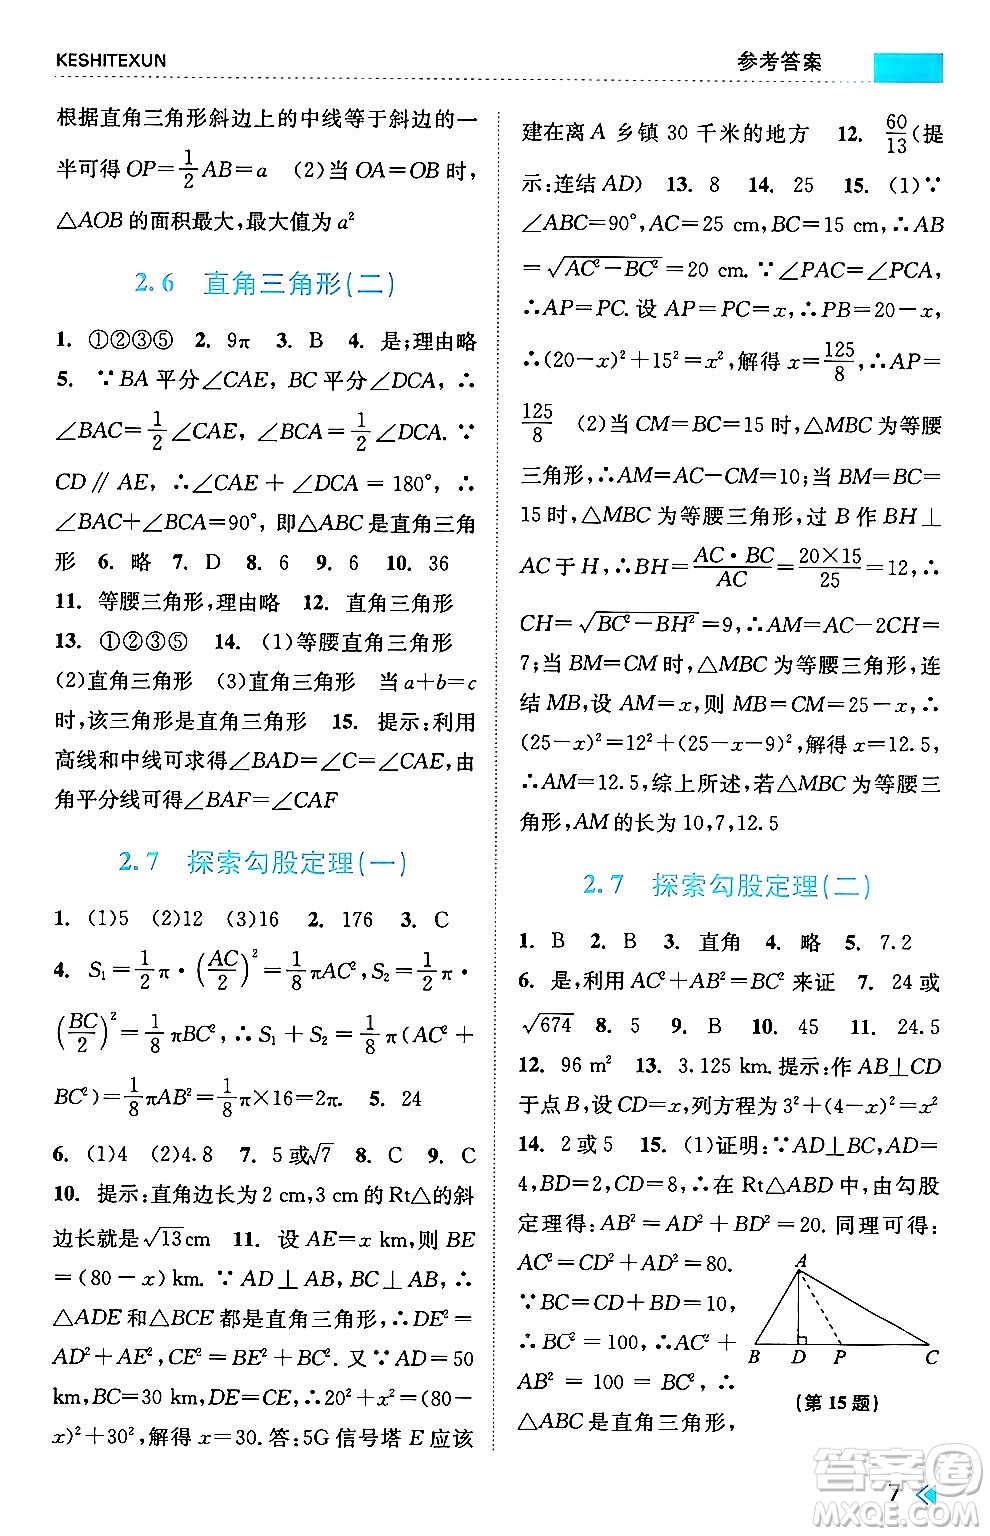 KESHITEXUN
参考答案
根据直角三角形斜边上的中线等于斜边的一
半可得 OP=1/2 AB=a (2)当 OA=OB 时,
△AOB 的面积最大,最大值为 a²
2.6 直角三角形(二)
1. ①②③⑤ 2. 9π 3. B 4. 是;理由略
5. ∵BA 平分∠CAE, BC 平分∠DCA, ∴
∠BAC=1/2∠CAE, ∠BCA=1/2∠DCA. ∵
CD∥AE, ∴∠CAE+∠DCA=180°, ∴
∠BAC+∠BCA=90°, 即△ABC 是直角三角
形 6. 略 7. D 8. 6 9. 6 10. 36
11. 等腰三角形,理由略 12. 直角三角形
13. ①②③⑤ 14. (1)等腰直角三角形
(2)直角三角形 (3)直角三角形 当 a+b=c
时,该三角形是直角三角形 15. 提示:利用
高线和中线可得∠BAD=∠C=∠CAE,由
角平分线可得∠BAF=∠CAF
2.7 探索勾股定理(一)
1. (1)5 (2)12 (3)16 2. 176 3. C
4. S₁=1/2π·(AC/2)²=1/8πAC², S₂=1/2π·
(BC/2)²=1/8πBC², ∴S₁+S₂=1/8π(AC²+
BC²)=1/8πAB²=1/8π×16=2π. 5. 24
6. (1)4 (2)4.8 7. 5或√7 8. C 9. C
10. 提示:直角边长为 2 cm,3 cm 的 Rt△的斜
边长就是√13cm 11. 设 AE=x km,则 BE
=(80-x) km. ∵AD⊥AB, BC⊥AB, ∴
△ADE 和△BCE 都是直角三角形,∴DE²=
AD²+AE², CE²=BE²+BC². 又∵AD=50
km,BC=30 km,DE=CE,∴20²+x²=(80-
x)²+30²,解得 x=30. 答:5G 信号塔 E 应该
建在离 A 乡镇 30 千米的地方 12. 60/13(提
示:连结 AD) 13. 8 14. 25 15. (1)∵
∠ABC=90°,AC=25 cm,BC=15 cm,∴AB
=√(AC²-BC²)=20 cm. ∵∠PAC=∠PCA,
∴AP=PC. 设 PA=PC=x,∴PB=20-x,
∴(20-x)²+15²=x²,解得 x=125/8,∴AP=
125/8 (2)当 CM=BC=15 时,△MBC 为等腰
三角形,∴AM=AC-CM=10;当 BM=BC=
15 时,△MBC 为等腰三角形,过 B 作 BH⊥
AC 于 H,∴BH=AC·BC/AC=20×15/25=12,∴
CH=√(BC²-BH²)=9,∴AM=AC-2CH=
7;当 BM=CM 时,△MBC 为等腰三角形,连
结 MB,设 AM=x,则 BM=CM=25-x,∴
(25-x)²=12²+(25-x-9)²,解得 x=12.5,
∴AM=12.5,综上所述,若△MBC 为等腰三
角形,AM 的长为 10,7,12.5
2.7 探索勾股定理(二)
1. B 2. B 3. 直角 4. 略 5. 7.2
6. 是,利用 AC²+AB²=BC² 来证 7. 24 或
√674 8. 5 9. B 10. 45 11. 24.5
12. 96 m² 13. 3.125 km. 提示:作 AB⊥CD
于点 B,设 CD=x,列方程为 3²+(4-x)²=x²
14. 2 或 5 15. (1)证明:∵AD⊥BC,AD=
4,BD=2,CD=8,∴在 Rt△ABD 中,由勾股
定理得:AB²=AD²+BD²=20. 同理可得:
AC²=CD²+AD²=80.
∵BC=CD+BD=10,
∴BC²=100,∴AC²+
AB²=100=BC²,∴
△ABC 是直角三角形,
A
B D P C
(第 15 题)
7
答案圈
MXQE.COM